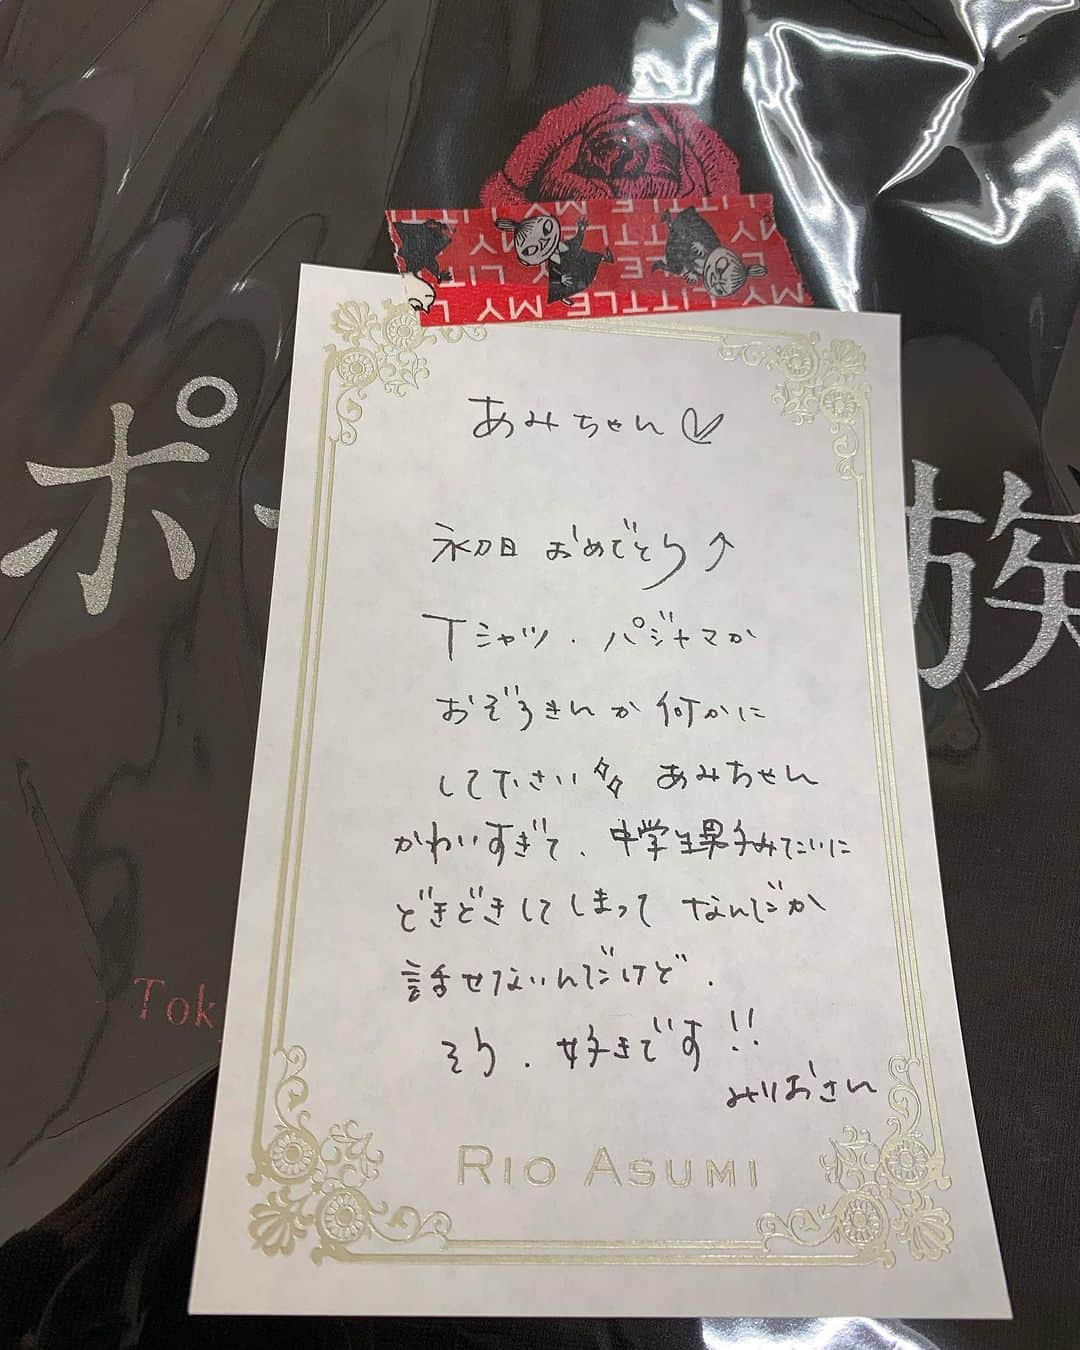 MY LITTLE MY LITTLE MY
MY LITTLE MY L
ポ
族
Tok
あみちゃん♡
初日 おめでとう↑
Tシャツ、パジャマか
おぞうきんか何かに
して下さい あみちゃん
かわいすぎて、中学生男子みたいに
どきどきしてしまって なんだか
話せないんだけど、
そう、好きです!!
みりおさん
RIO ASUMI